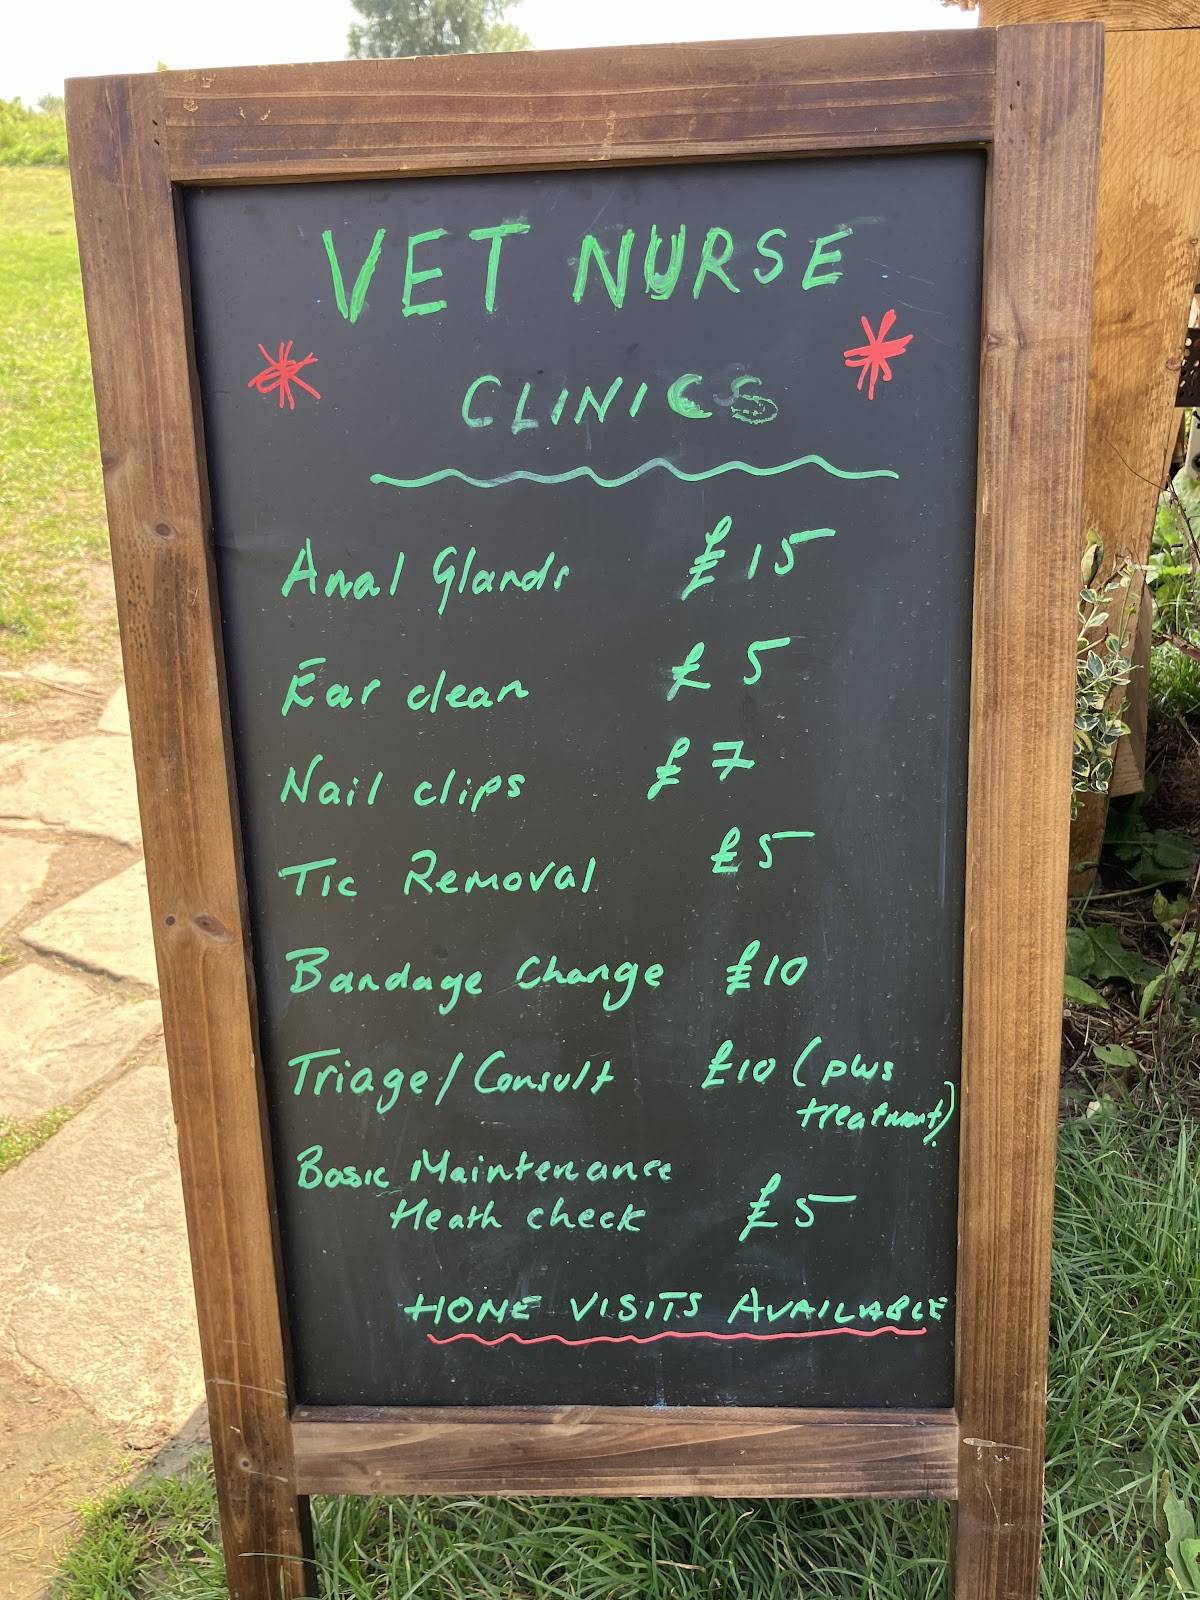 VET NURSE
CLINICS
Anal Glands £15
Ear clean £5
Nail clips £7
Tic Removal £5
Bandage Change £10
Triage/Consult £10 (plus
treatment)
Basic Maintenance
Heath check £5
HOME VISITS AVAILABLE